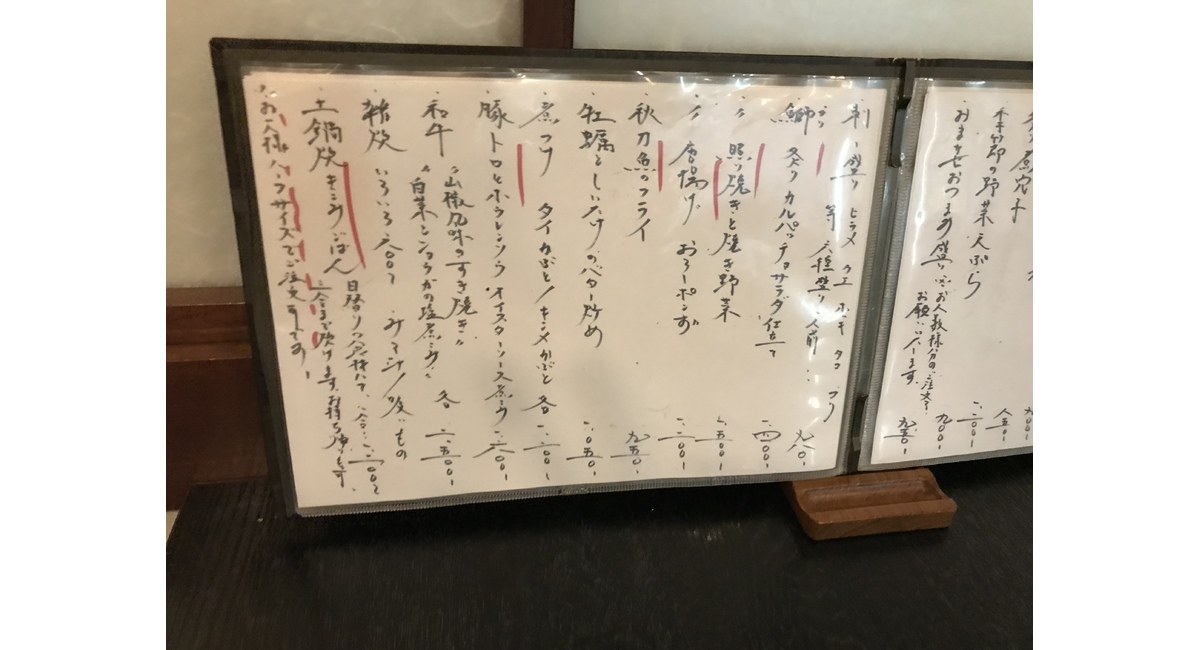 煮穴子
季節の野菜天ぷら
おまかせおつまみ盛り
お人数様分のご注文で
お願いいたします。
九〇〇-
九五〇-
刺し盛り ヒラメ クエ ホッキ タコ ブリ
等 六種盛り 一人前 九八〇-
鰤 炙りカルパッチョサラダ仕立て 一、四〇〇-
〃 照り焼きと焼き野菜 一、五〇〇-
〃 唐揚げ おろしポン酢 一、二〇〇-
秋刀魚のフライ 九五〇-
牡蠣としいたけのバター炒め 一、〇五〇-
煮つけ タイかぶと/キンメかぶと 各 一、二〇〇-
豚トロとホウレンソウ オイスターソース煮こみ 一、六〇〇-
和牛 “山椒風味のすき焼き”
“白菜ととうふの塩煮こみ” 各 一、五〇〇-
雑炊 いろいろ 六〇〇~ みそ汁/吸いもの
土鍋炊きこみごはん 日替りの食材にて、一合 一、二〇〇~
二合まで炊けます。お持ち帰りも
お一人様ハーフサイズでご注文です!